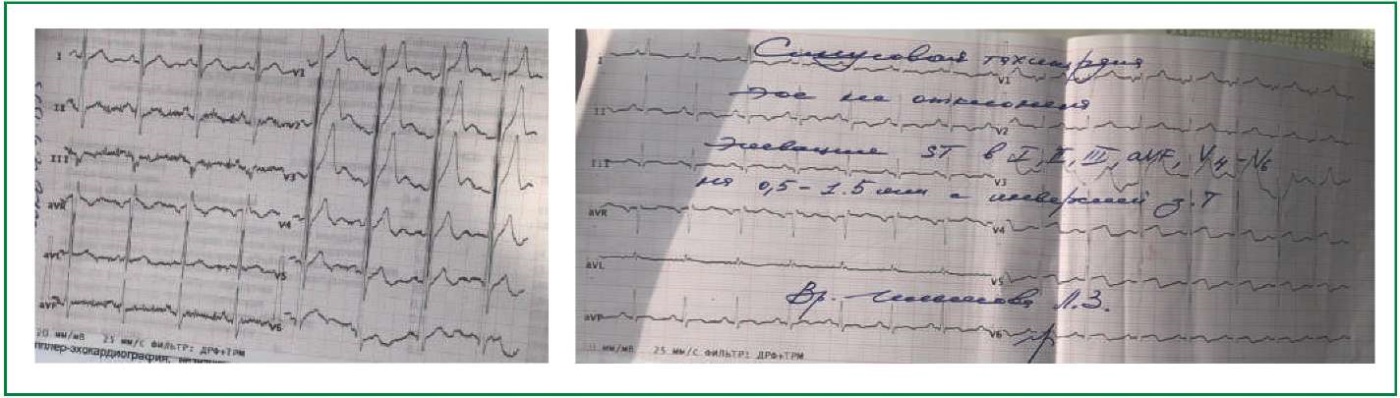 I
V1
II
III
V3
aVR
V4
aVL
V5
aVF
V6
20 мм/мВ 25 мм/с ФИЛЬТР: ДРФ+ТРМ
плер-эхокардиография,
I
Синусовая тахикардия
V1
Эос не отклонена
II
V2
Элевация ST в I, II, III, aVF, V4-V6
III
V3
на 0,5-1.5 мм с инверсией з.Т
aVR
V4
aVL
V5
Вр. Л.З.
aVF
V6
мм/мВ 25 мм/с ФИЛЬТР: ДРФ+ТРМ